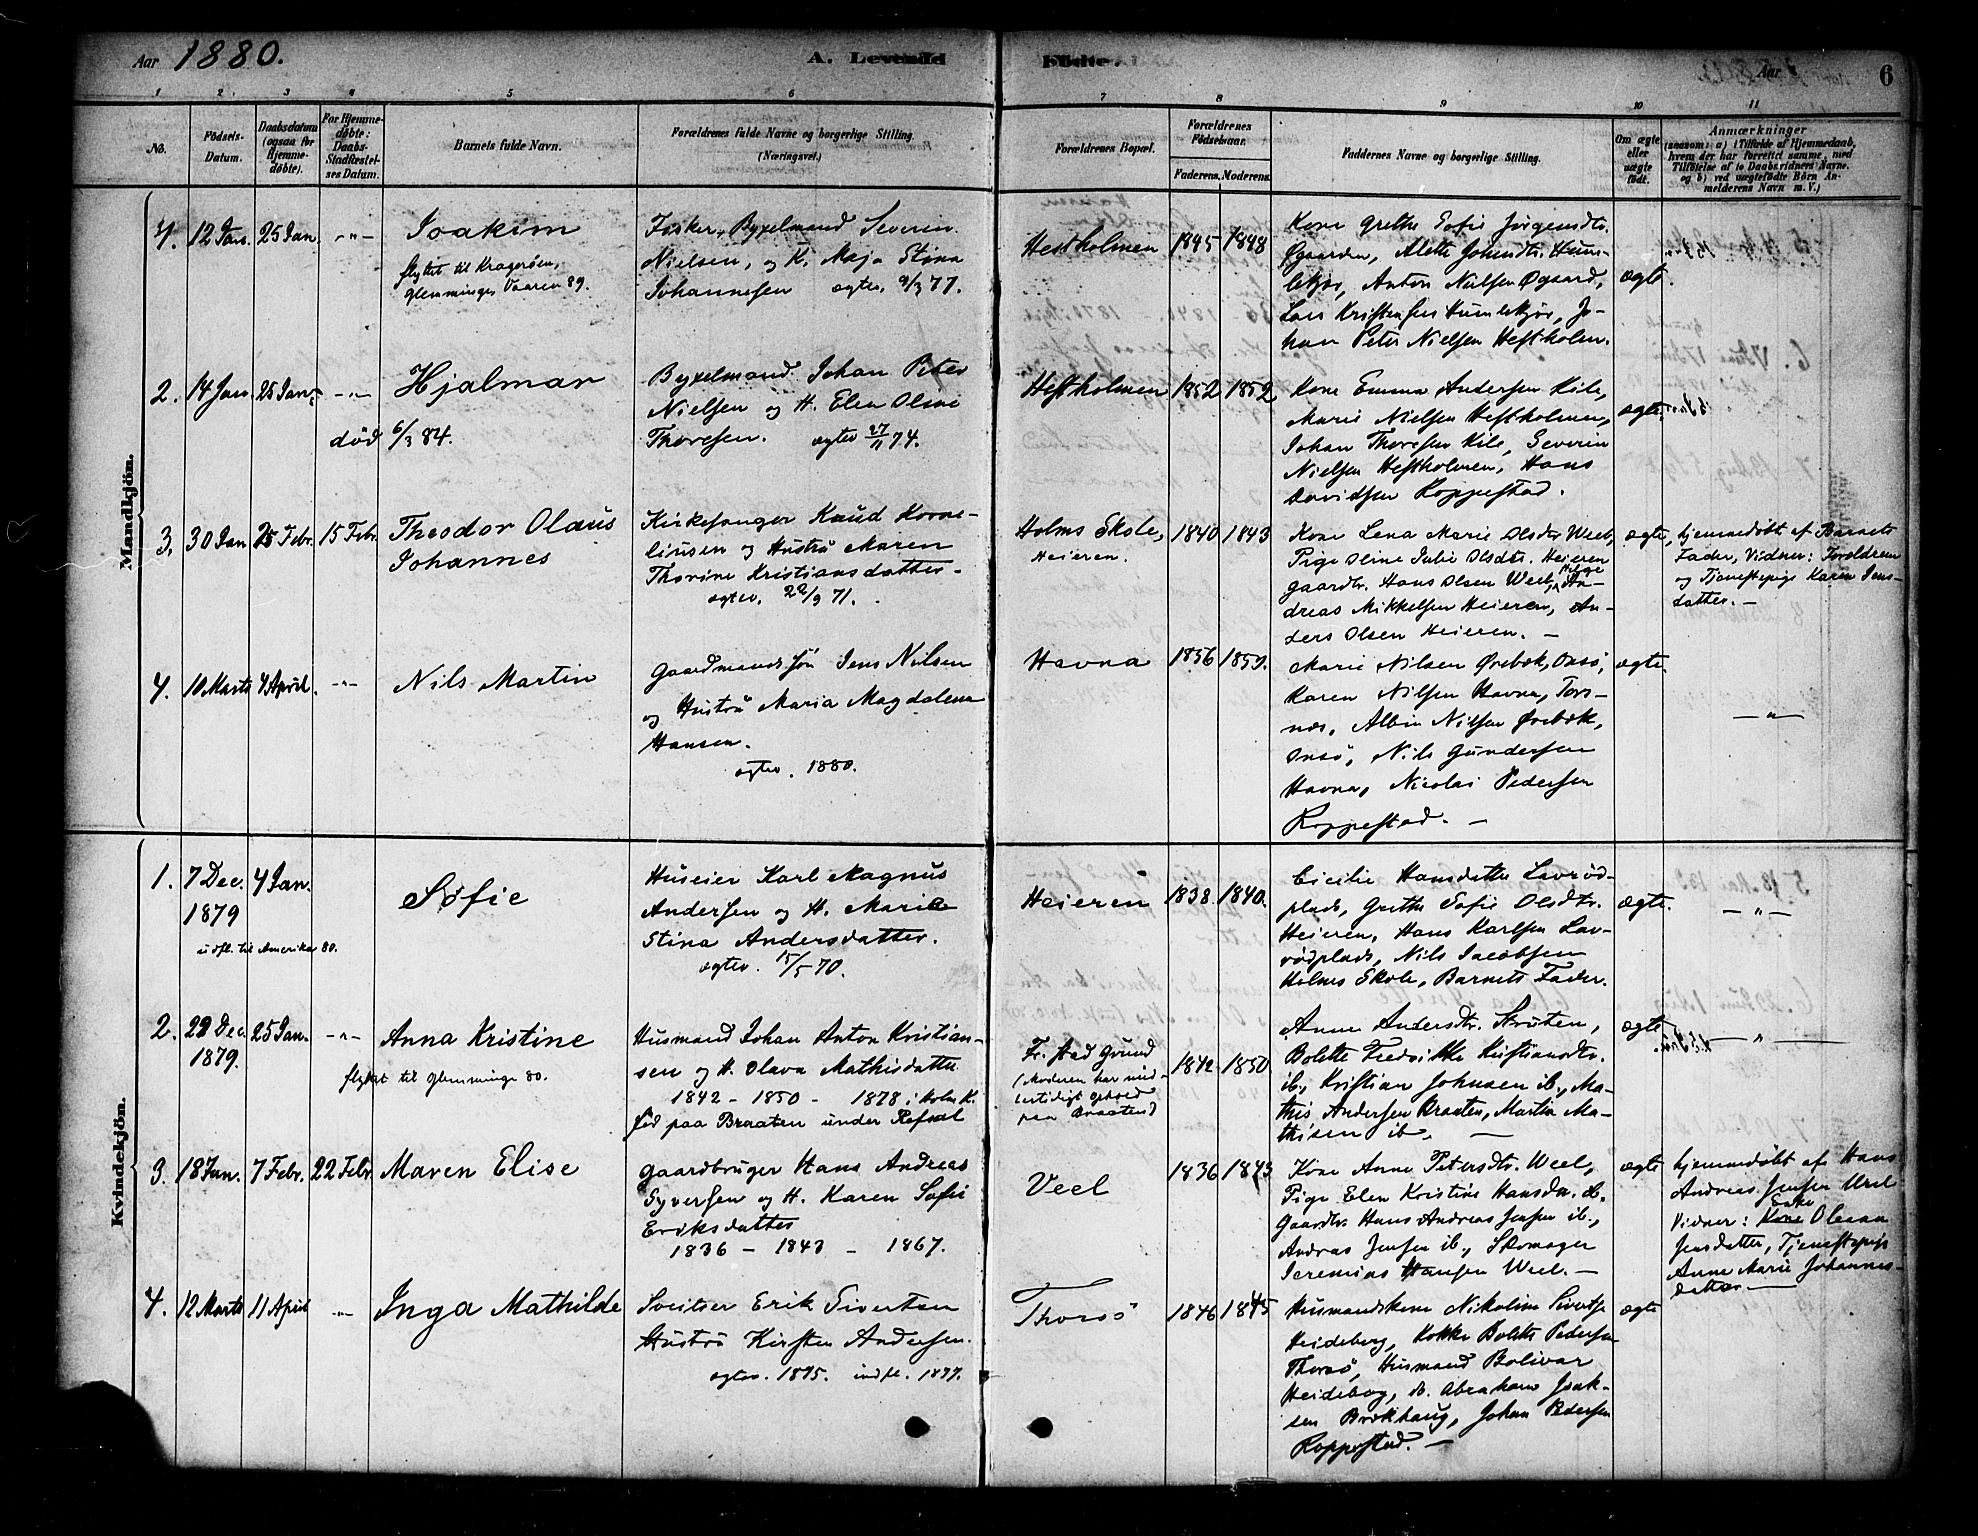 Aar 1880. A. Levende Fødte. Aar 6
1 2 3 4 5 6 7 8 9 10 11
No.
Födsels-
Datum.
Daabsdatum
(ogsaa for
Hjemme-
döbte).
For Hjemme-
döbte:
Daabs-
Stadfæstel-
ses Datum.
Barnets fulde Navn.
Forældrenes fulde Navne og borgerlige Stilling.
(Næringsvei.)
Forældrenes Bopæl.
Forældrenes
Födselsaar.
Faderens. Moderens.
Faddernes Navne og borgerlige Stilling.
Om ægte
eller
uægte
födt.
Anmærkninger
(saasom: a) i Tilfælde af Hjemmedaab,
hvem der har forrettet samme, med
Tilföielse af to Daabsvidners Navne.
og b) ved uægtefödte Börn An-
melderens Navn m. V.)
Mandkjön.
1. 12 Jan. 25 Jan. -"- Joakim
flyttet til Kragerøen,
Glemminge, Vaaren 89.
Fisker, Byxelmand Severin
Nielsen, og H. Maja Stina
Johannesen ægtev. 9/3 77.
Hestholmen 1845 1848
Kone Grethe Sofie Jörgensdtr.
Øgaarden, Alette Johnsdtr. Hum-
lekjær, Anton Nielsen Øgaard,
Lars Kristensen Humlekjær, Jo-
han Peter Nielsen Hestholm.
ægte.
2. 14 Jan. 25 Jan. -"- Hjalmar
död 6/3 84.
Byxelmand Johan Peter
Nielsen og H. Elen Oline
Thoresen. ægtev 27/11 74.
Hestholmen 1852 1852
Kone Emma Andersen Kile,
Marie Nielsen Hestholmen,
Johan Thoresen Kile, Severin
Nielsen Hestholmen, Hans
Davidsen Roppestad.
ægte.
3. 30 Jan 25 Febr. 15 Febr. Theodor Olaus
Johannes
Kirkesanger Knud Korne-
liusen og Hustru Maren
Thorine Kristiansdatter.
ægtev. 22/9 71.
Holms Skole,
Heieren.
1840 1843
Kone Lena Marie Olsdtr Weel,
Pige Oline Julie Olsdtr. Heieren
gaardbr. Hans Olsen Weel, An-
dreas Mikkelsen Heieren, An-
ders Olsen Heieren. -
ægte,
hjemmedöbt af Barnets
Fader, Vidner: Forældrene
og Tjenestepige Karen Jens-
datter. -
4. 10 Marts 4 April. -"- Nils Martin
Gaardmands sön Jens Nilsen
og Hustru Maria Magdalena
Hansen.
ægtev. 1880.
Havna 1856 1857.
Marie Nilsen Ørebæk, Onsö,
Karen Nilsen Havna, Tors-
næs, Albin Nilsen Ørebæk,
Onsö, Nils Gundersen
Havna, Nicolai Pedersen
Roppestad. -
ægte. -"-
Kvindekjön.
1. 7 Dec. 4 Jan.
1879
udfl. til Amerika 80.
Sofie
Huseier Karl Magnus
Andersen og H. Marie
Stina Andersdatter.
ægtev. 15/5 70.
Heieren 1838. 1840.
Cicilie Hansdatter Lavröd-
plads, Grethe Sofie Olsdtr.
Heieren, Hans Karlsen Lav-
rödplads, Nils Jacobsen
Holmes Skole, Barnets Fader.
ægte. -"-
2. 22 Dec. 25 Jan. -"- Anna Kristine
1879.
flyttet til Glemminge 80.
Husmand Johan Anton Kristian-
sen og H. Olava Mathisdatter
1842 - 1850 - 1878 i Holm K.
Föd paa Braaten under Refsal
Fr. stad Grund
(Moderen har mid-
lertidigt ophold
paa Braaten)
1842 1850
Anne Andersdtr. Struten,
Bolette Fredrikke Kristiansdtr.
ib., Kristian Johnsen ib., Ma-
this Andersen Braaten, Martin Ma-
thisen ib. -
ægte -"-
3. 18 Jan. 7 Febr. 22 Febr. Maren Elise
Gaardbruger Hans Andreas
Syversen og H. Karen Sofie
Eriksdatter
1836 - 1843 - 1867.
Veel 1836 1843
Kone Anne Petersdtr. Weel,
Pige Elen Kristine Hansdtr. ib.
Gaardbr. Hans Andreas Jensen ib.,
Andreas Jensen ib., Skomager
Jeremias Hansen Weel. -
ægte
hjemmedöbt af Hans
Andreas Jensen Veel
Enke
Vidner: Kone Oleana
Jensdatter, Tjenestepige
Anne Marie Johannes-
datter -
4. 12 Marts 11 April -"- Inga Mathilde
Sveitser Erik Sivertsen
Hustru Kirsten Andersen.
ægtev. 1875. indfl. 1877.
Thorsö 1846 1845
Husmandskone Nikoline Sivertsen
Heideberg, Kokke Bolette Pedersen
Thorsö, Husmand Bolivar
Heideberg, do. Abraham Isak-
sen Brækhaug, Johan Pedersen
Roppestad. -
ægte